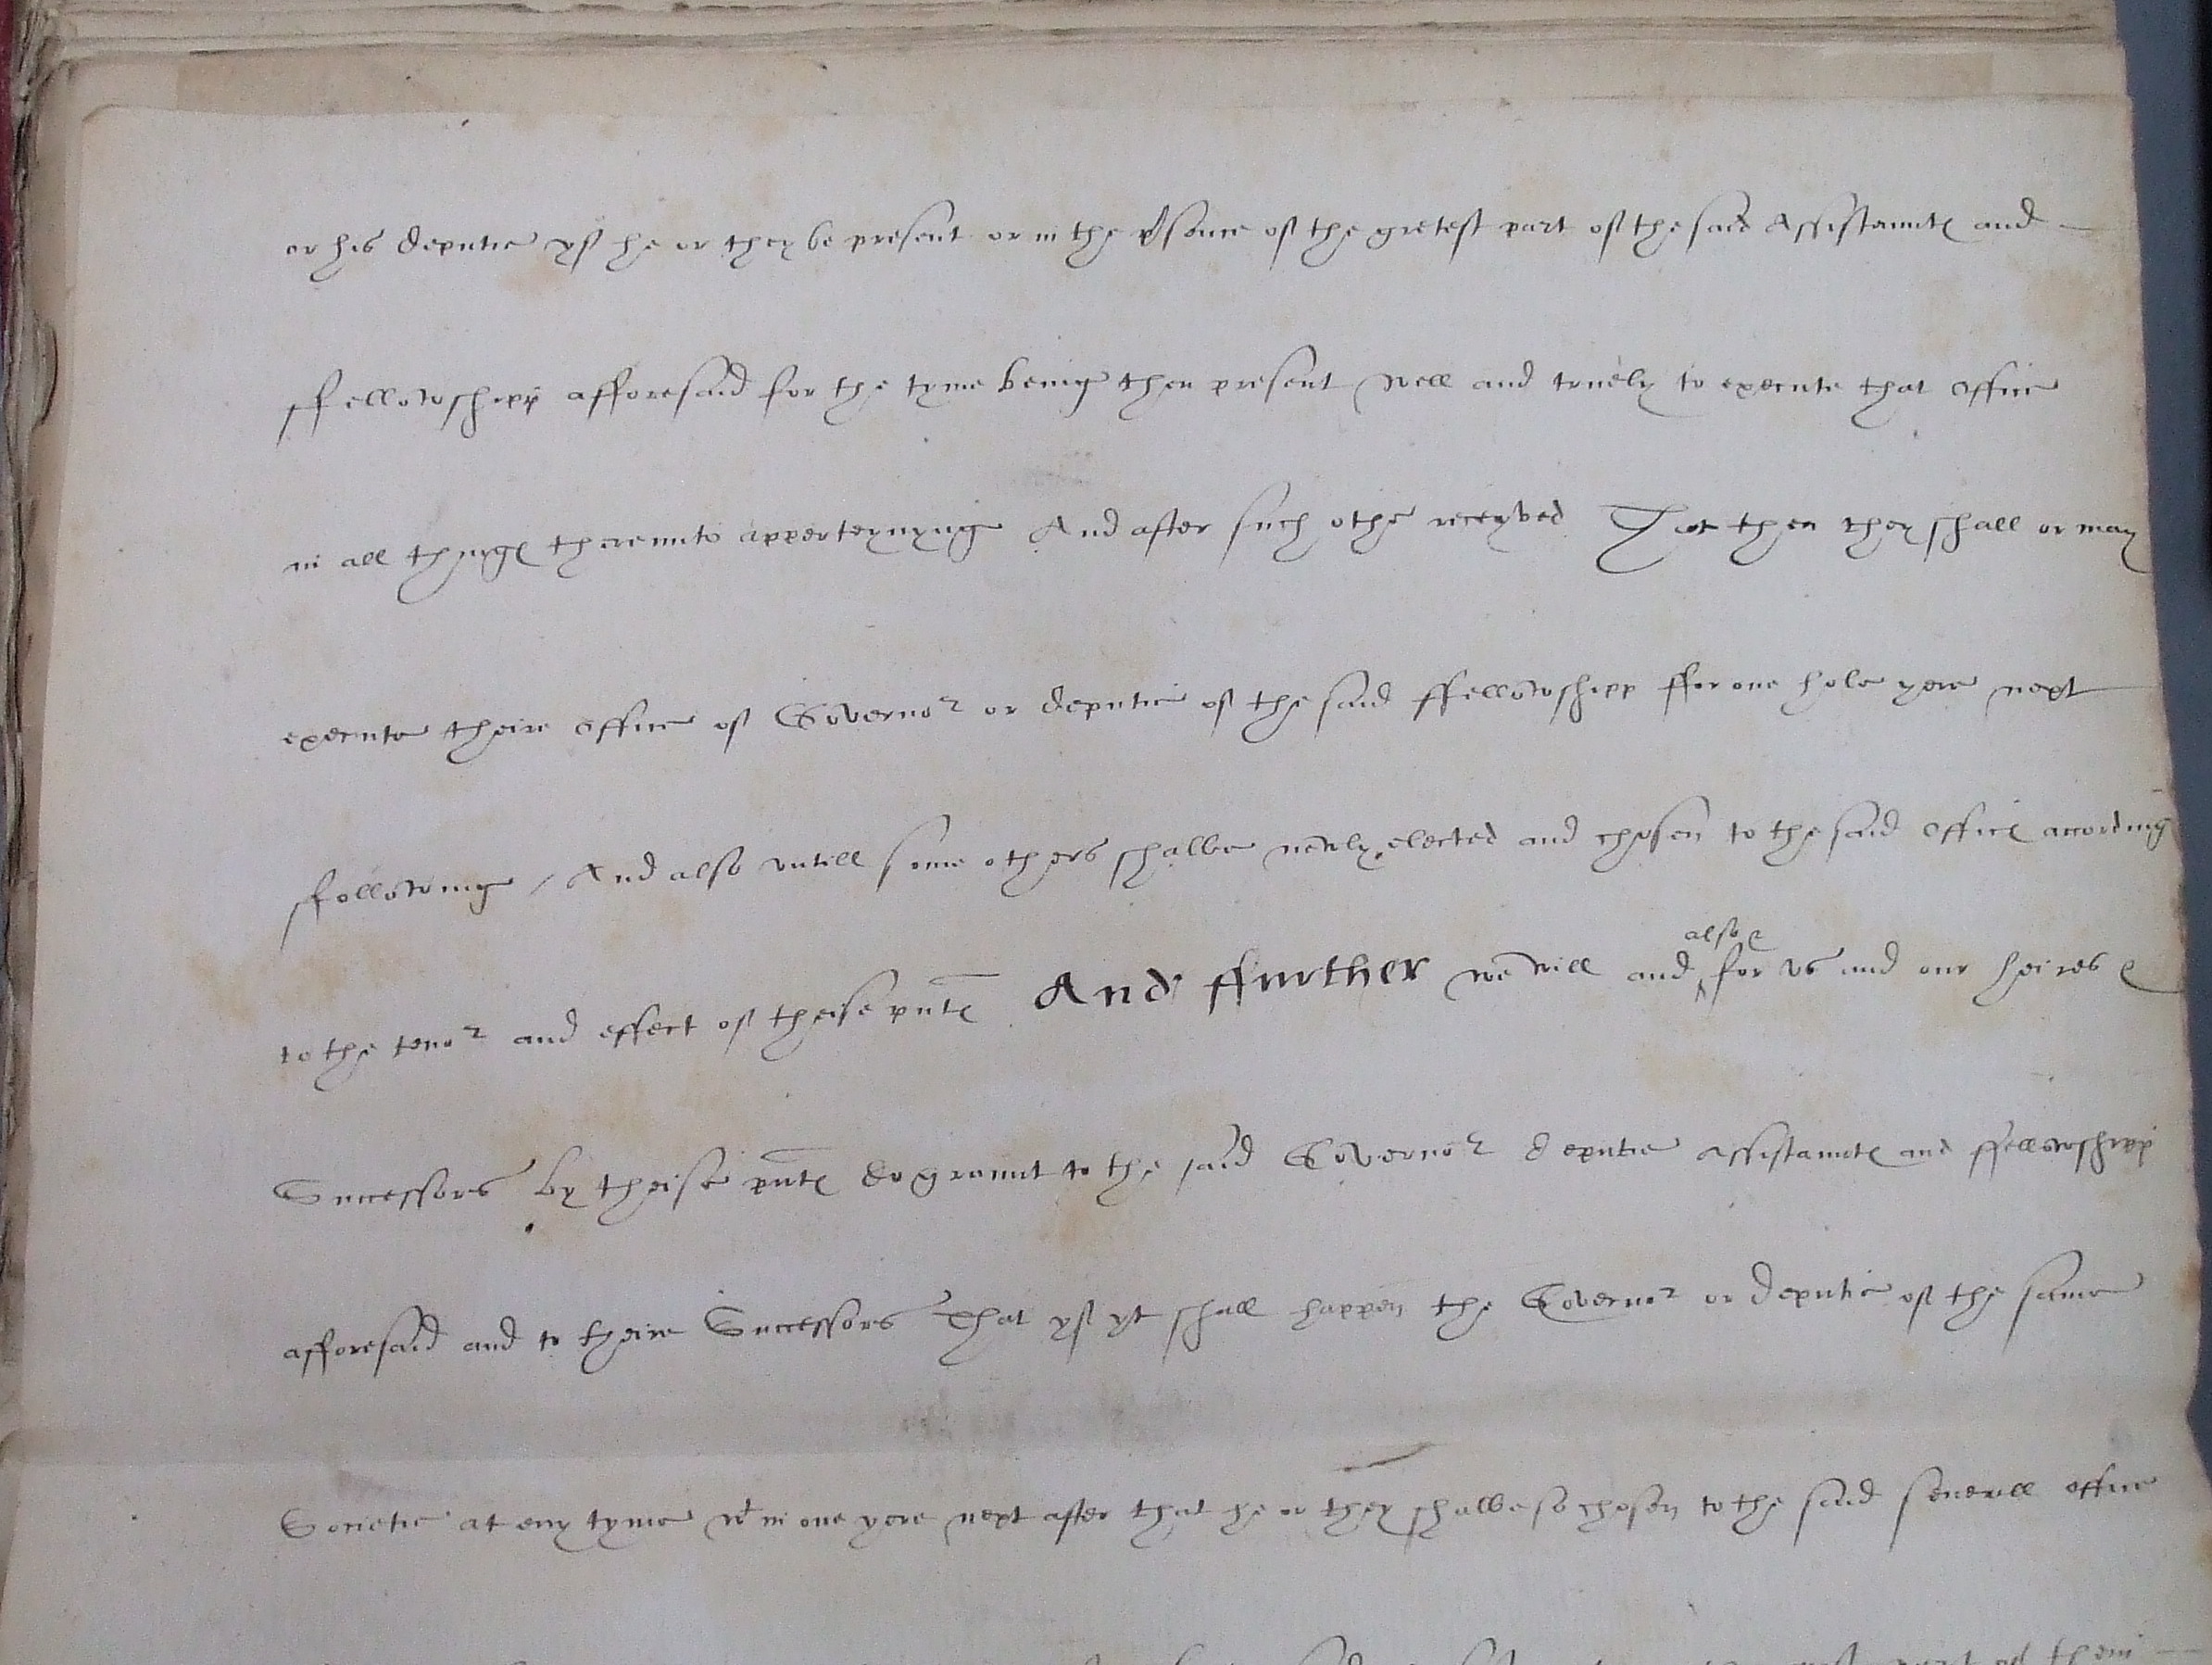 or his deputie yf he or they be present or in the p̱sence of the gretest part of the said Assistauntꝭ and
ffellowshipp afforesaid for the tyme being then present well and truely to execute that office
in all thyngꝭ thereunto apperteynyng And after such othe receyved That then they shall or may
execute theire office of Governor or deputie of the said ffellowshipp ffor one hole yere next
ffollowing / And also vntill some others shalbe newly elected and chosen to the said officꝭ according
to the tenor and effect of theise pn̄tꝭ And ffurther we will and also for vs and our heires &
Successors by theise pn̄tꝭ do graunt to the said Governor deputie assistauntꝭ and ffellowshipp
afforesaid and to theire Successors That yf yt shall happen the Governor or deputie of the same
Societie at eny tyme wt in one yere next after that he or they shalbe so chosen to the said severall office
part of them